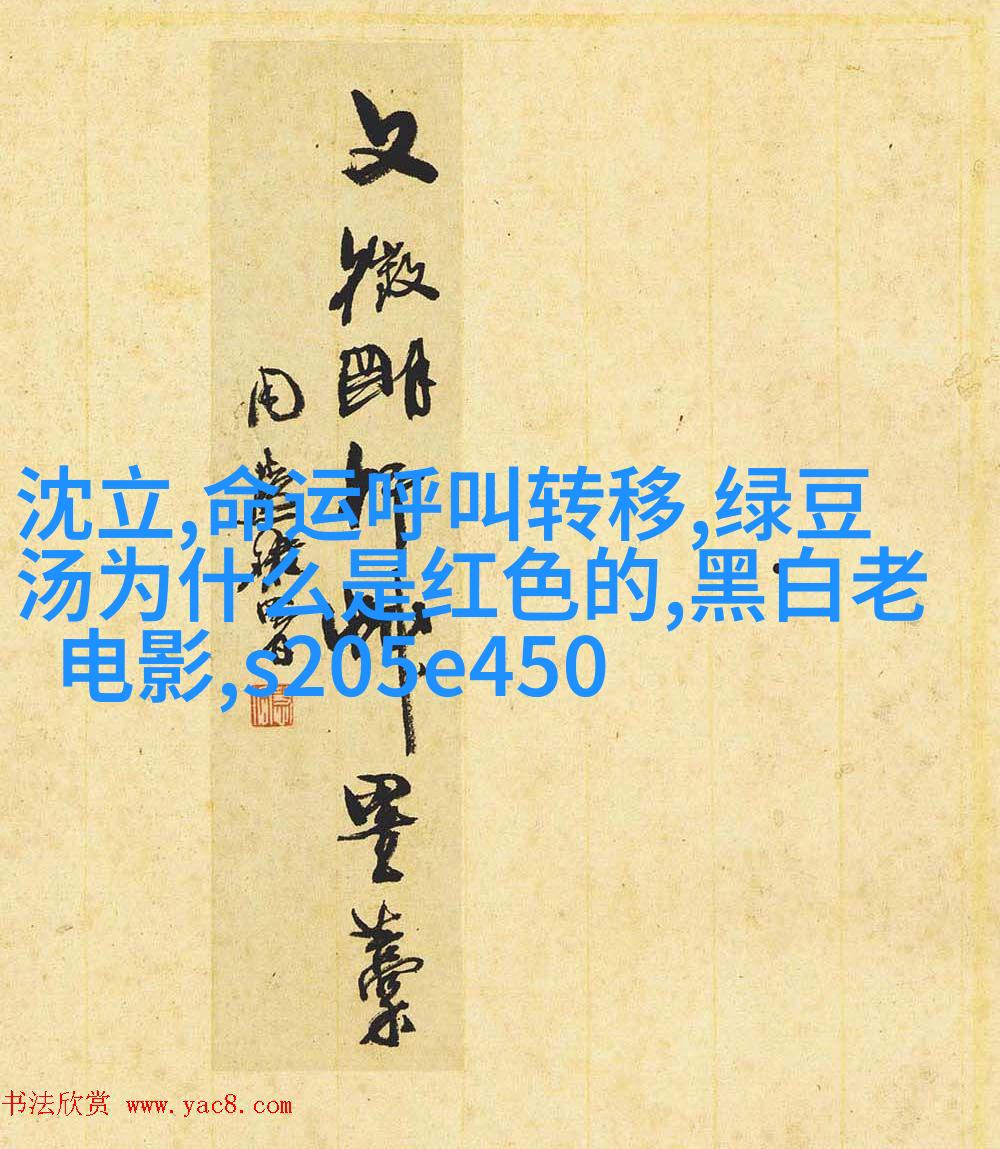 文徵明行書墨藁
沈立,命运呼叫转移,绿豆
汤为什么是红色的,黑白老
电影,s205e450
书法欣赏 www.yac8.com